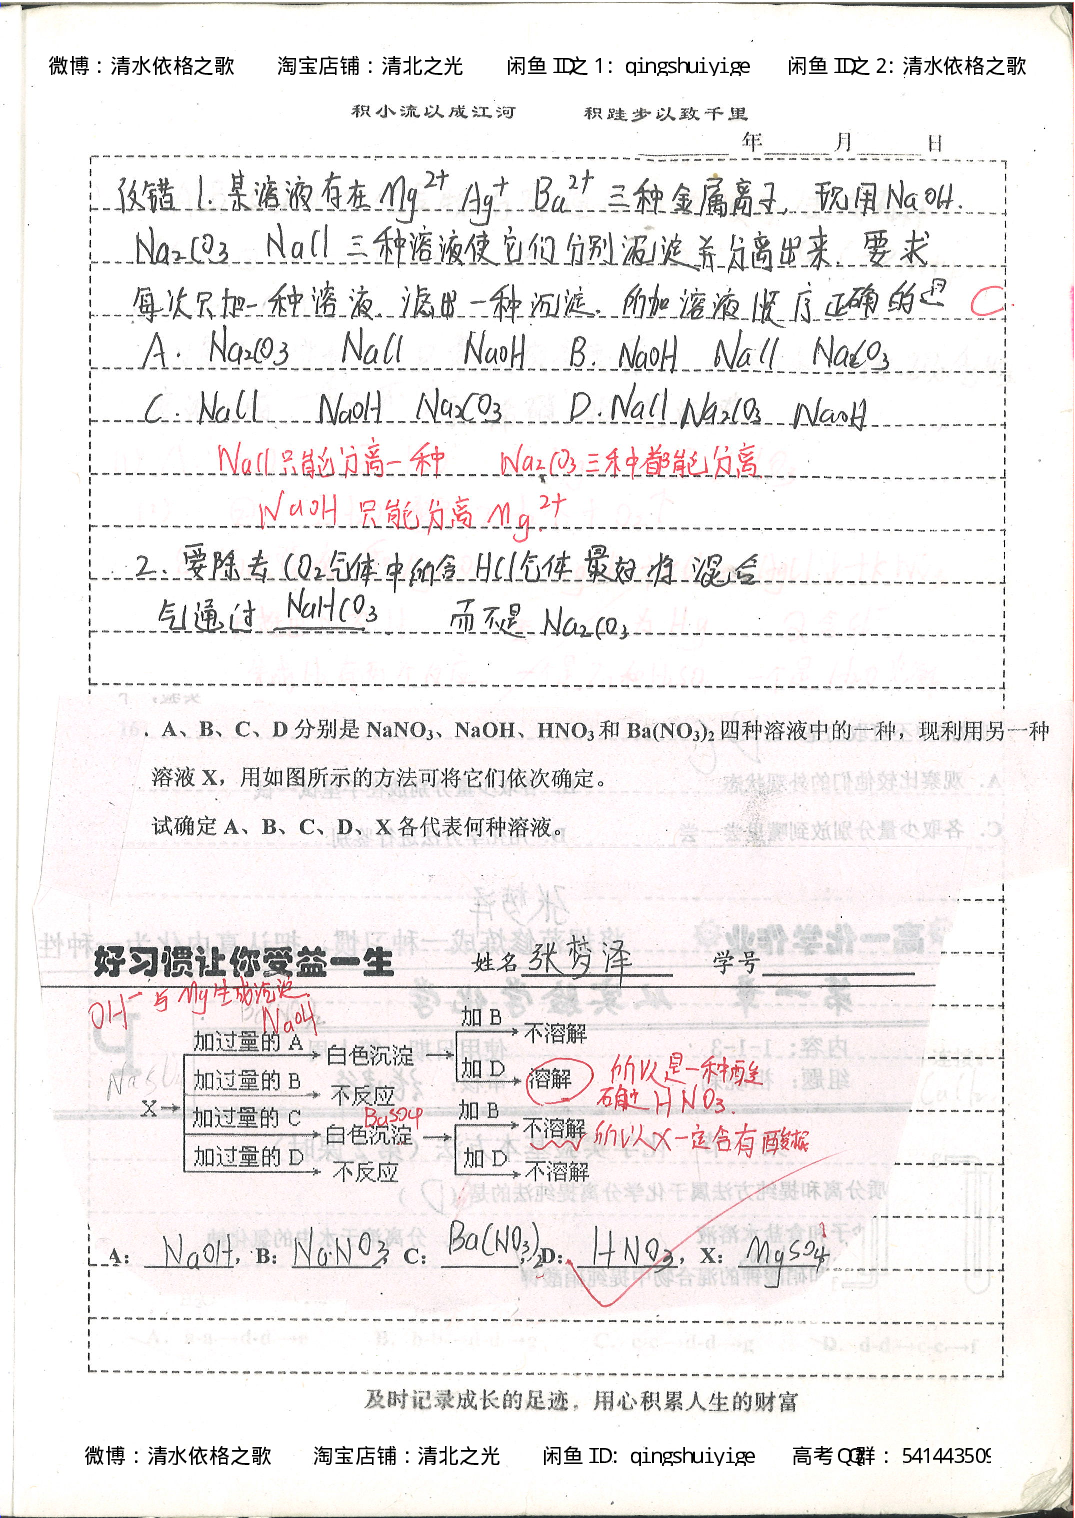 微博：清水依格之歌 淘宝店铺：清北之光 闲鱼 ID之 1： qingshuiyige 闲鱼 ID之 2：清水依格之歌
积小流以成江河 积跬步以致千里
年 月 日
改错 1. 某溶液存在 Mg²⁺ Ag⁺ Ba²⁺ 三种金属离子，现用NaOH.
Na₂CO₃ NaCl 三种溶液使它们分别沉淀并分离出来. 要求
每次只加一种溶液. 滤出一种沉淀. 所加溶液顺序正确的是 C
A. Na₂CO₃ NaCl NaOH B. NaOH NaCl Na₂CO₃
C. NaCl NaOH Na₂CO₃ D. NaCl Na₂CO₃ NaOH
NaCl只能分离一种 Na₂CO₃三种都能分离
NaOH 只能分离 Mg²⁺
2. 要除去 CO₂气体中的含 HCl气体 最好将 混合
气通过 NaHCO₃ 而不是 Na₂CO₃
. A、B、C、D 分别是 NaNO₃、NaOH、HNO₃和 Ba(NO₃)₂ 四种溶液中的一种，现利用另一种
溶液 X，用如图所示的方法可将它们依次确定。
试确定 A、B、C、D、X 各代表何种溶液。
好习惯让你受益一生 姓名 张梦泽 学号
OH⁻与Mg生成沉淀.
NaOH
加过量的 A 白色沉淀 加 B 不溶解
加 D 溶解 所以是一种酸
硝酸 HNO₃.
加过量的 B 不反应
X
加过量的 C BaSO₄ 白色沉淀 加 B 不溶解 所以X一定含有酸根
加 D 不溶解
加过量的 D 不反应
A: NaOH, B: NaNO₃, C: Ba(NO₃)₂, D: HNO₃, X: MgSO₄
及时记录成长的足迹，用心积累人生的财富
微博：清水依格之歌 淘宝店铺：清北之光 闲鱼 ID: qingshuiyige 高考 QQ群： 541443509